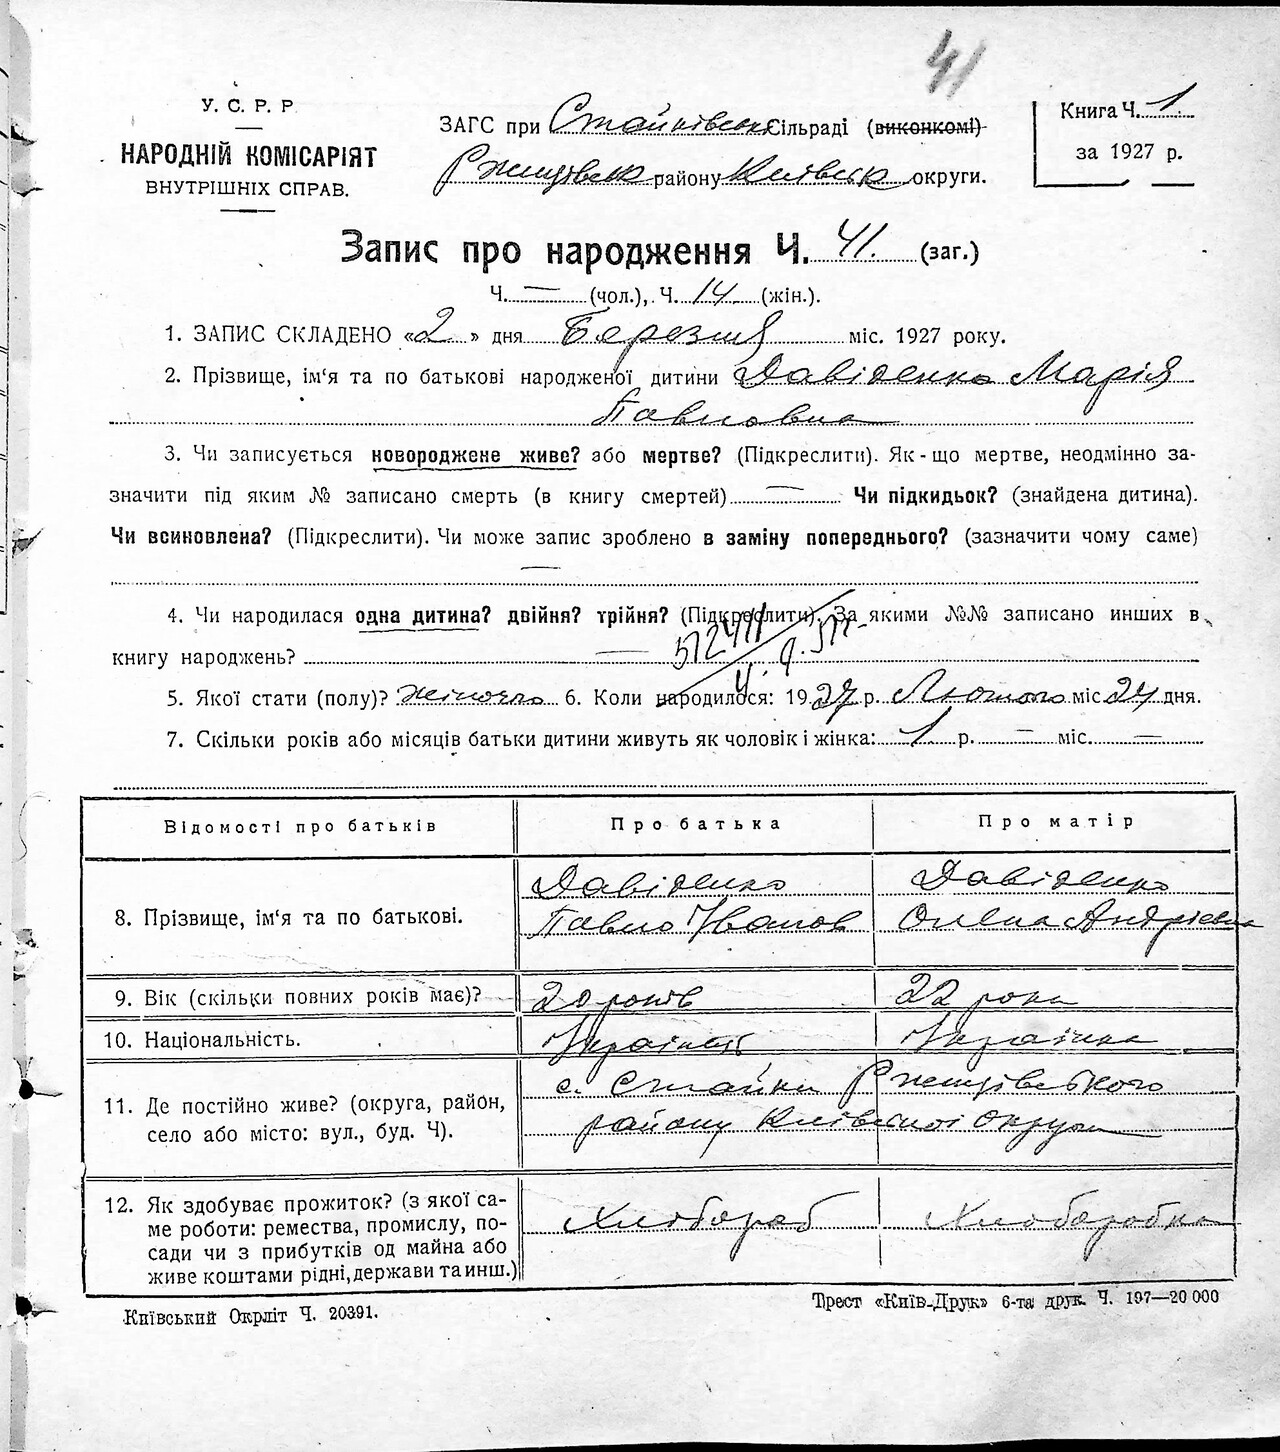 41
У. С. Р. Р.
НАРОДНІЙ КОМІСАРІЯТ
ВНУТРІШНІХ СПРАВ.
ЗАГС при Стайківськ Сільраді (виконкомі)
Ржищівськ району Київськ округи.
Книга Ч. 1
за 1927 р.
Запис про народження Ч. 41. (заг.)
Ч. — (чол.), Ч. 14 (жін.).
1. ЗАПИС СКЛАДЕНО «2» дня Березня міс. 1927 року.
2. Прізвище, ім'я та по батькові народженої дитини Давіденко Марія
Павловна
3. Чи записується новороджене живе? або мертве? (Підкреслити). Як-що мертве, неодмінно за-
значити під яким № записано смерть (в книгу смертей) — Чи підкидьок? (знайдена дитина).
Чи всиновлена? (Підкреслити). Чи може запис зроблено в заміну попереднього? (зазначити чому саме)
—
4. Чи народилася одна дитина? двійня? трійня? (Підкреслити). За якими №№ записано инших в
книгу народжень? —
5. Якої стати (полу)? жіночого 6. Коли народилося: 1927 р. Лютого міс 24 дня.
7. Скільки років або місяців батьки дитини живуть як чоловік і жінка: 1 р. — міс. —
Відомості про батьків Про батька Про матір
8. Прізвище, ім'я та по батькові.
Давіденко Павло Іванов
Давіденко Олена Андрієвна
9. Вік (скільки повних років має)? 20 років 22 роки
10. Національність. Українець Українка
11. Де постійно живе? (округа, район,
село або місто: вул., буд. Ч).
с. Стайки Ржищівського
району Київської Округи
12. Як здобуває прожиток? (з якої са-
ме роботи: ремества, промислу, по-
сади чи з прибутків од майна або
живе коштами рідні, держави та инш.)
Хлібороб Хліборобка
Київський Окрліт Ч. 20391.
Трест «Київ-Друк» 6-та друк. Ч. 197—20 000